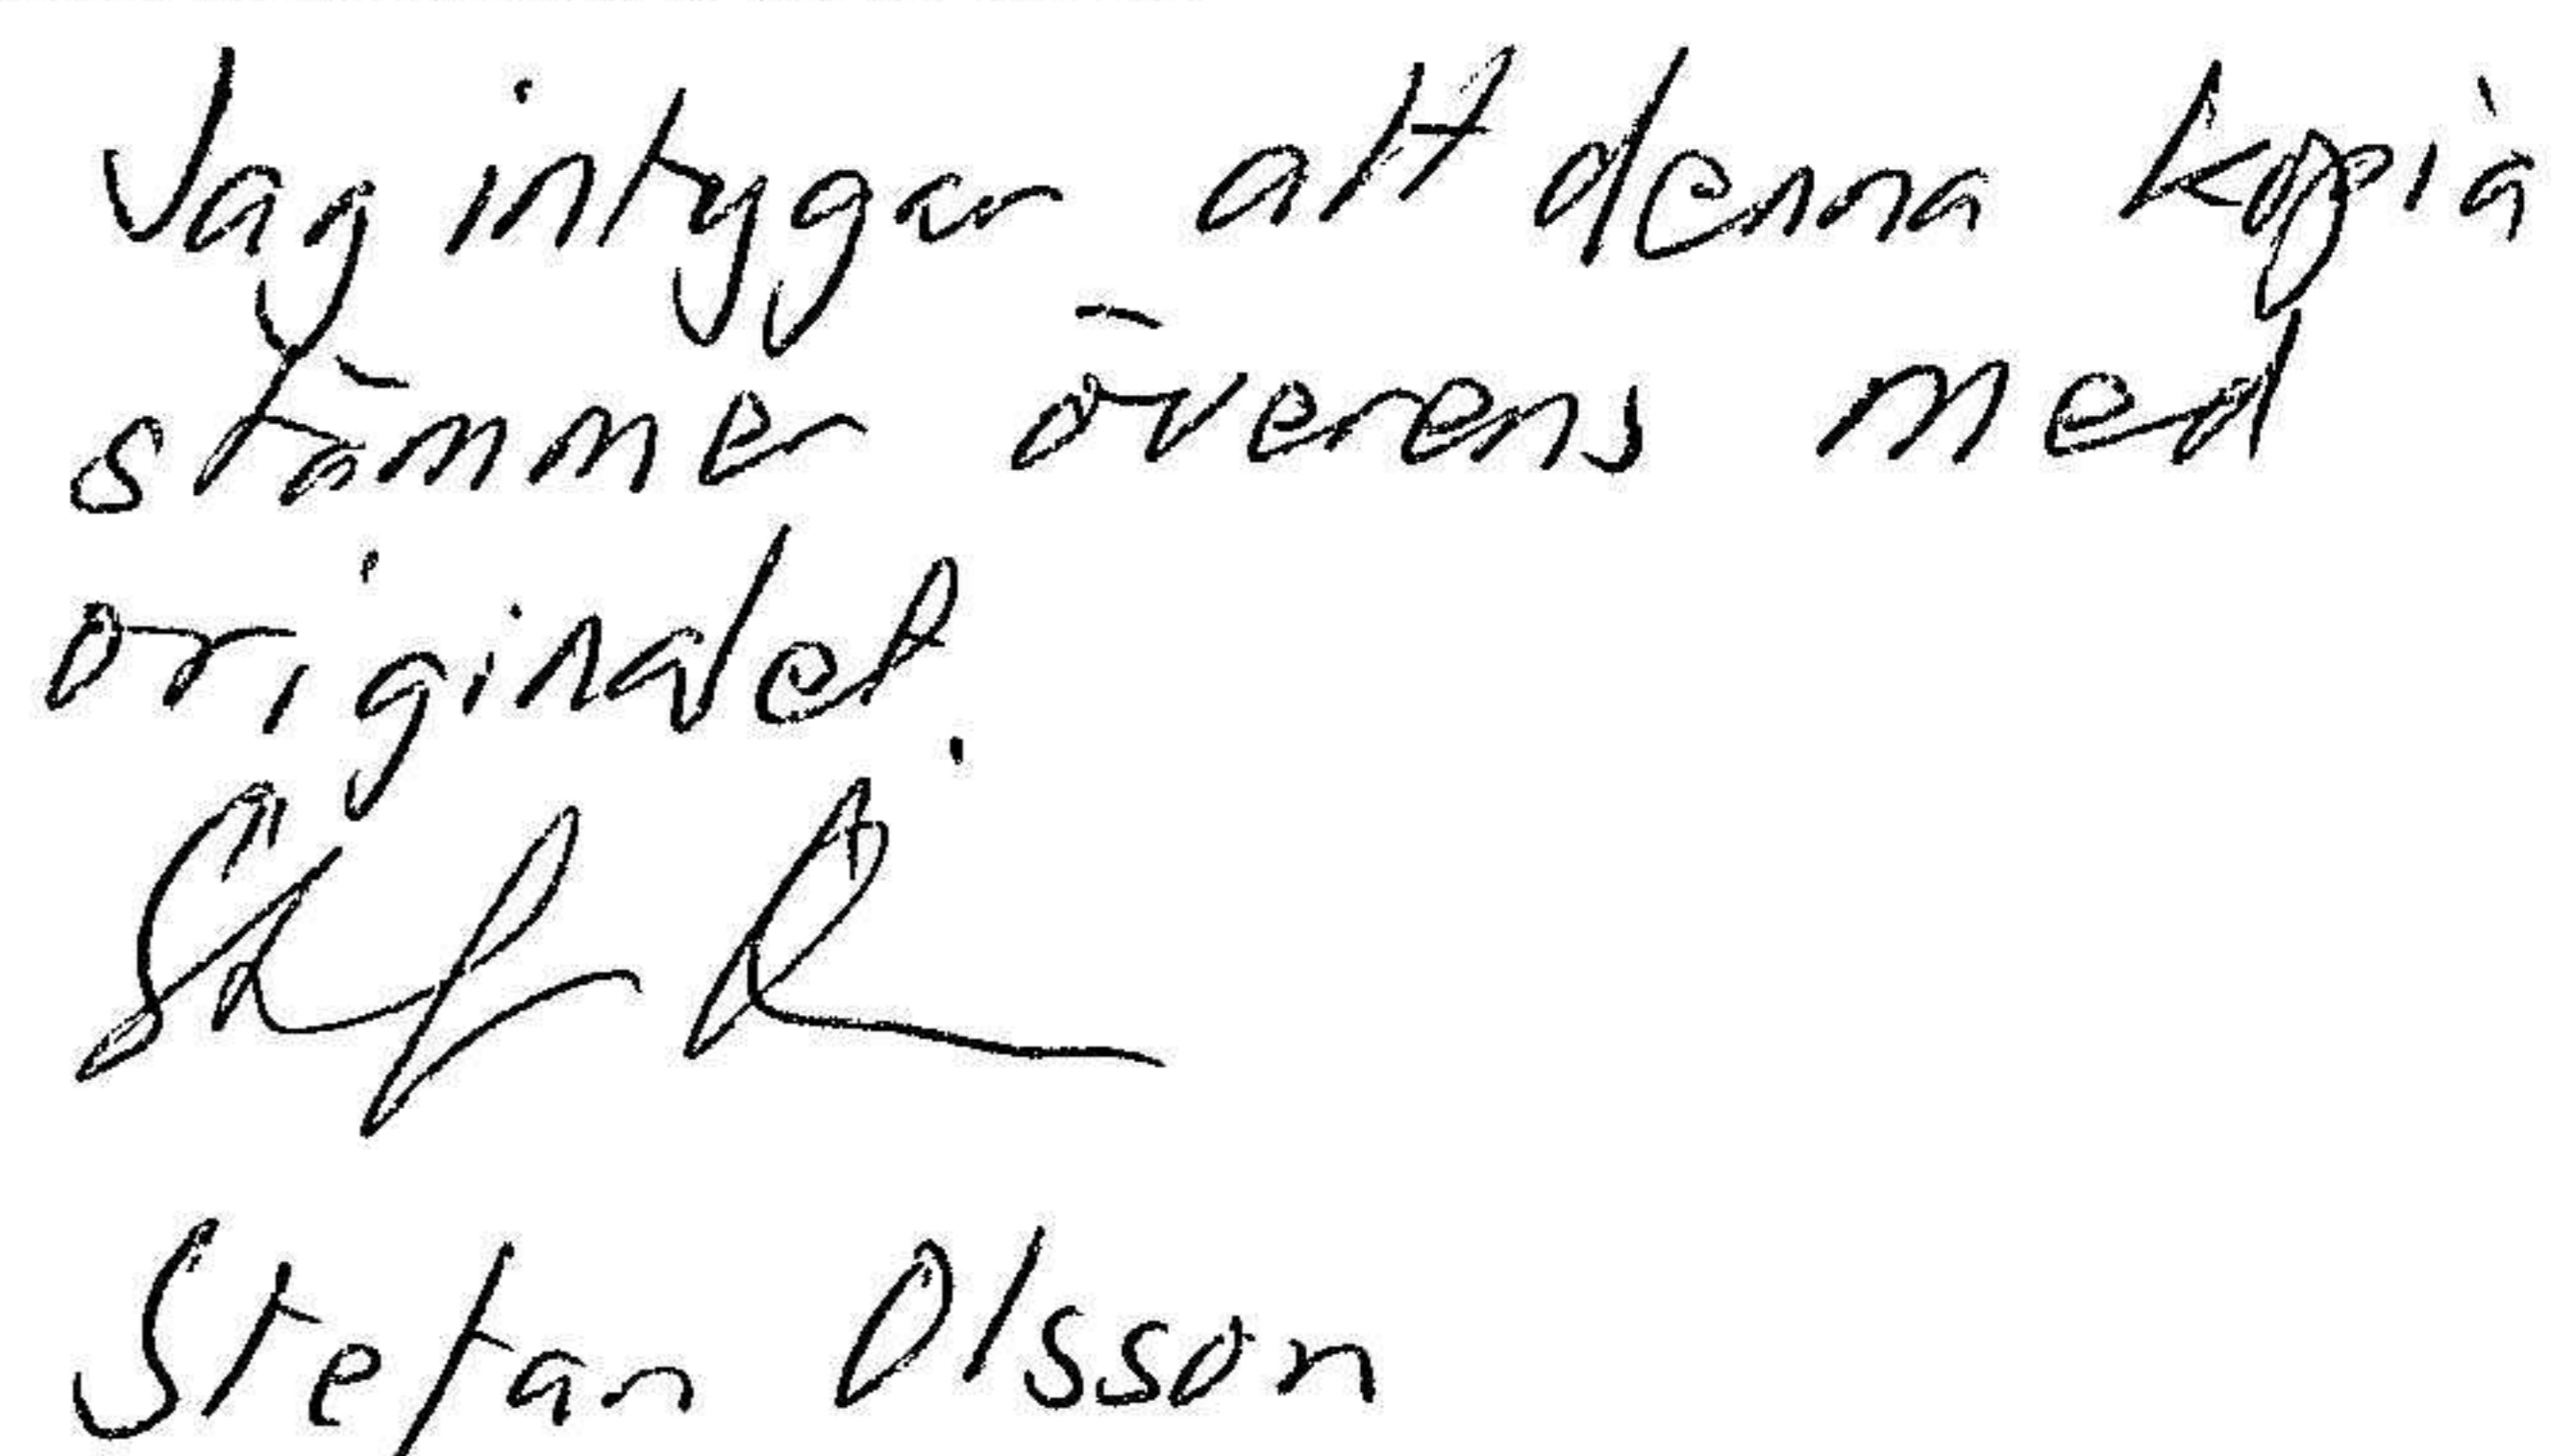 Jag intygar att denna kopia
stämmer överens med
originalet.
Stefan Olsson